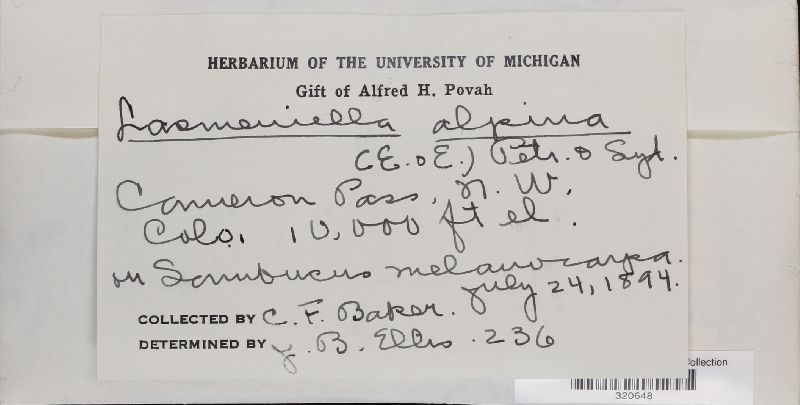 HERBARIUM OF THE UNIVERSITY OF MICHIGAN
Gift of Alfred H. Povah
Lasmeniella alpina
(E. & E.) Petr. & Syd.
Cameron Pass, N. W.
Colo. 10,000 ft el.
on Sambucus melanocarpa.
July 24, 1894.
COLLECTED BY C. F. Baker.
DETERMINED BY J. B. Ellis. 236
Collection
320648